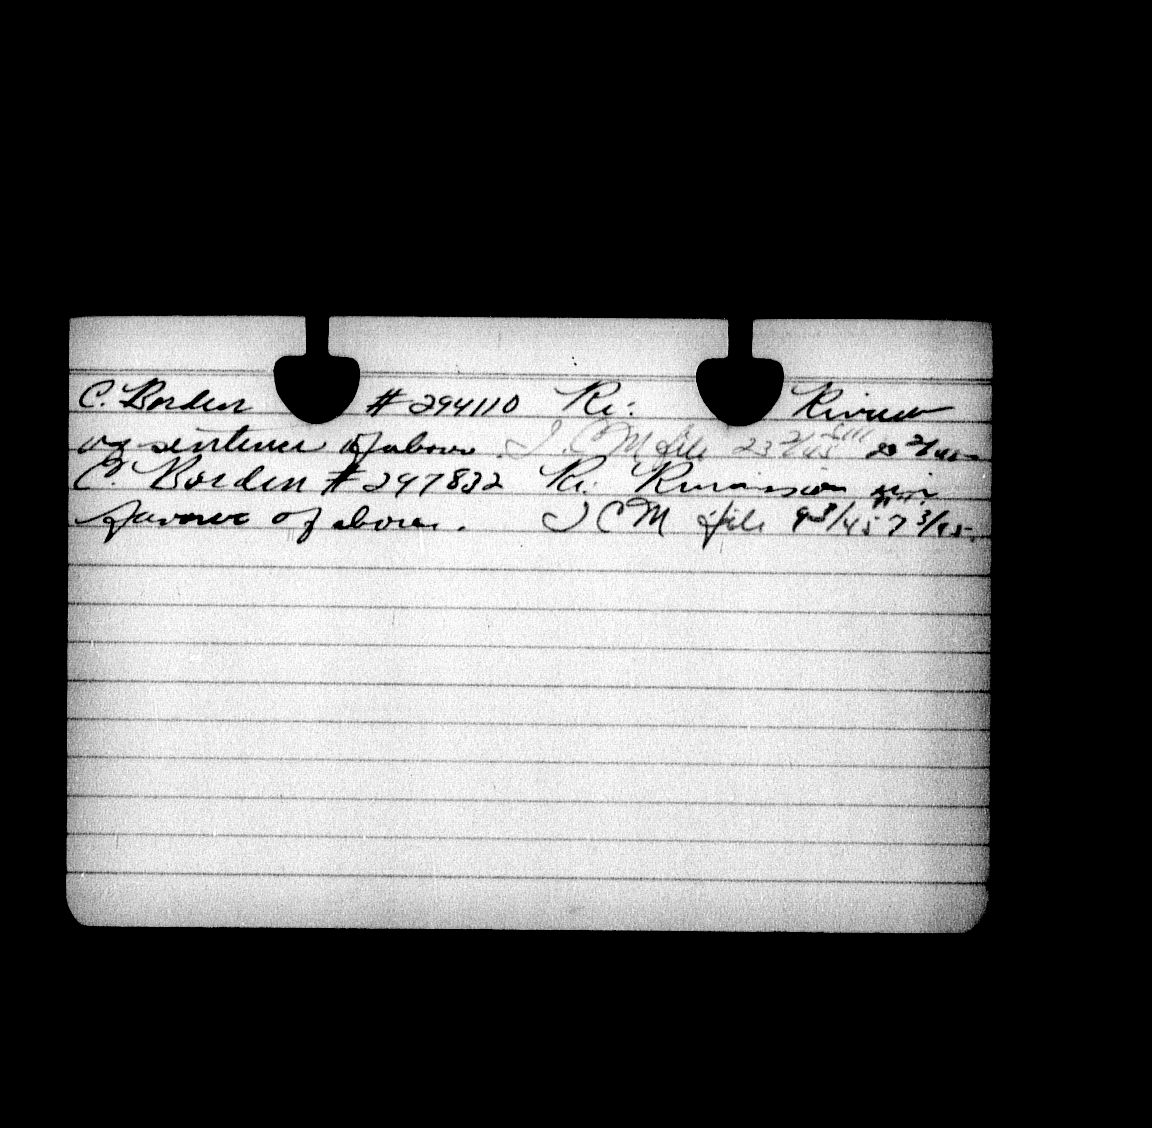 C. Borden # 294110 Re: Review
of sentence of above. I.C.M file 23 2/45 23 2/45
C. Borden # 297832 Re: Remission in
favour of above. I C M file 9 3/45 7 3/45.